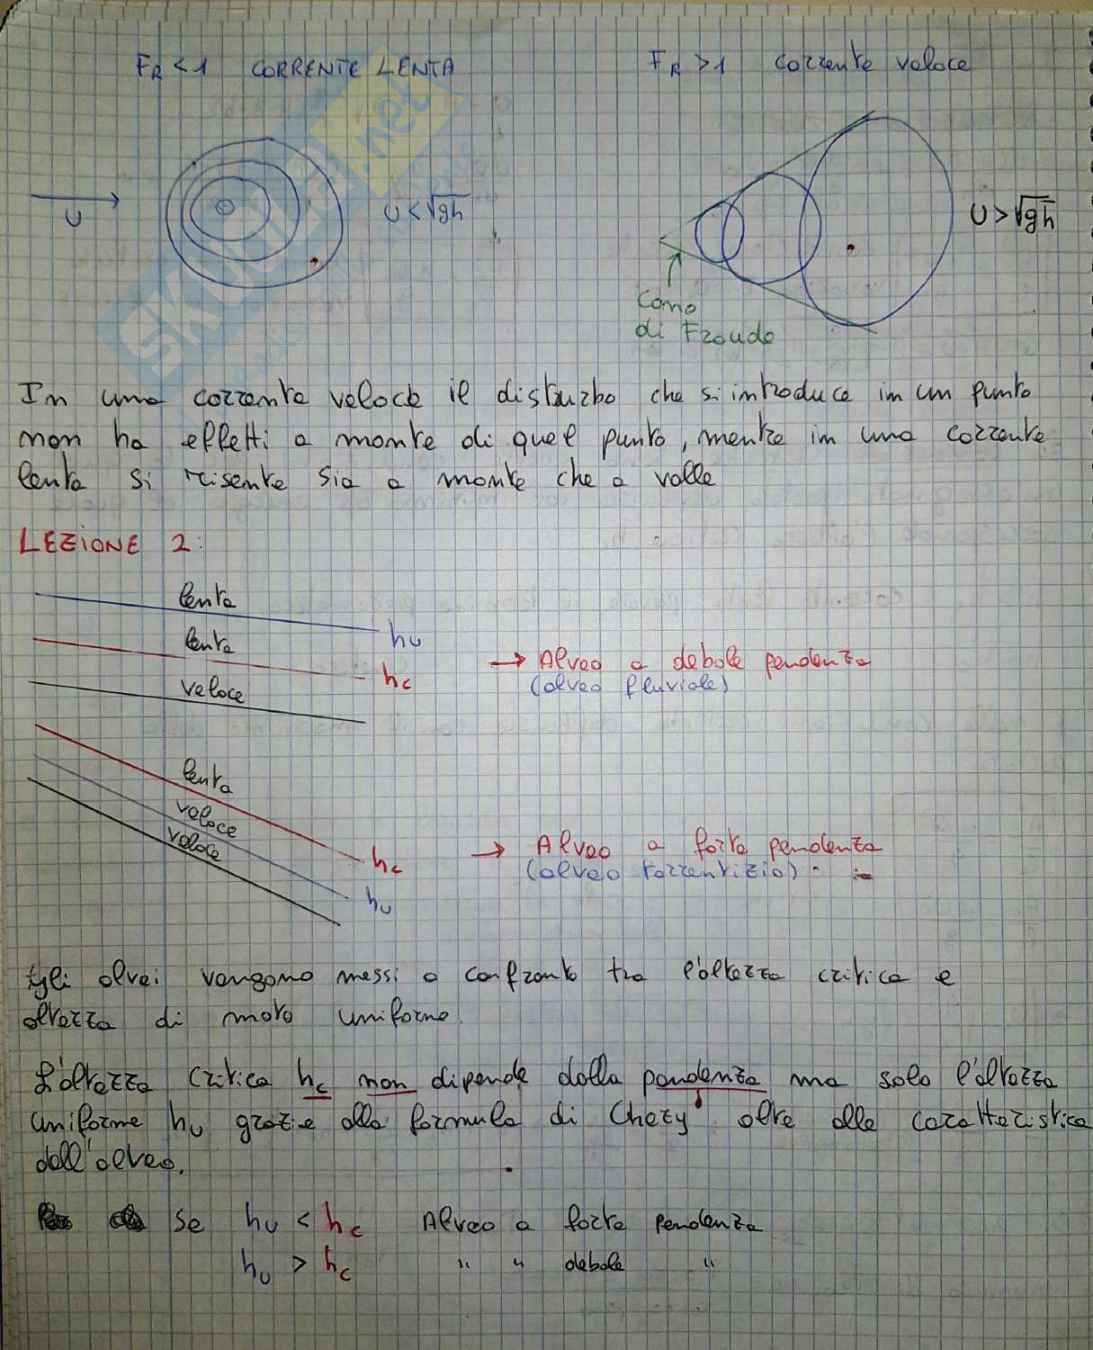 FR < 1 CORRENTE LENTA
FR > 1 corrente veloce
U
U < √gh
U > √gh
Cono
di Froude
In una corrente veloce il disturbo che si introduce in un punto
non ha effetti a monte di quel punto, mentre in una corrente
lenta si risente sia a monte che a valle
LEZIONE 2:
lenta
hu
lenta
hc
veloce
→ Alveo a debole pendenza
(alveo fluviale)
lenta
veloce
veloce
hc
hu
→ Alveo a forte pendenza
(alveo torrentizio)
Gli alvei vengono messi a confronto tra l'altezza critica e
altezza di moto uniforme.
L'altezza critica hc non dipende dalla pendenza ma solo l'altezza
uniforme hu grazie alla formula di Chezy oltre alle caratteristica
dell'alveo.
Se hu < hc Alveo a forte pendenza
hu > hc " " debole "
SKUOLA.net